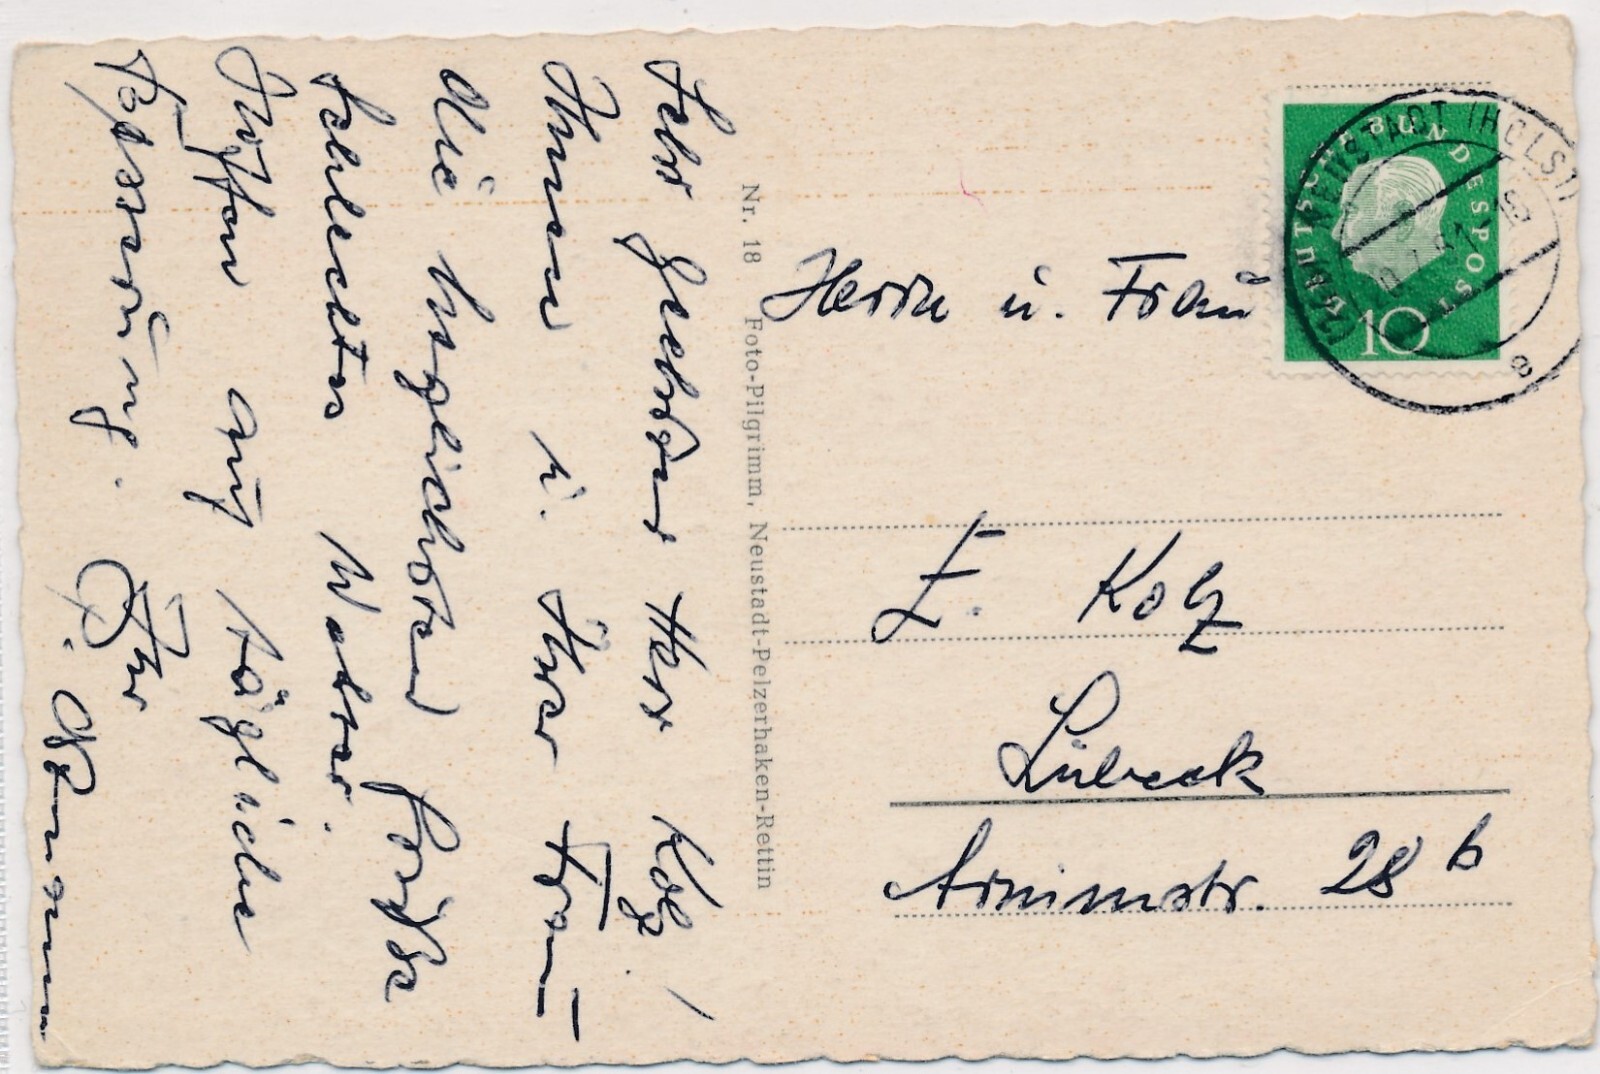 Sehr geehrter Herr Kolz!
Ihnen u. Ihrer Frau
die herzlichsten Grüße
Schlechtes Wetter.
Hoffen auf tägliche
Besserung. Ihr
Nr. 18 Foto-Pilgrimm, Neustadt-Pelzerhaken-Rettin
DEUTSCHE BUNDESPOST
10
NEUSTADT (HOLST)
Herrn u. Frau
E. Kolz
Lübeck
Arnimstr. 28 b